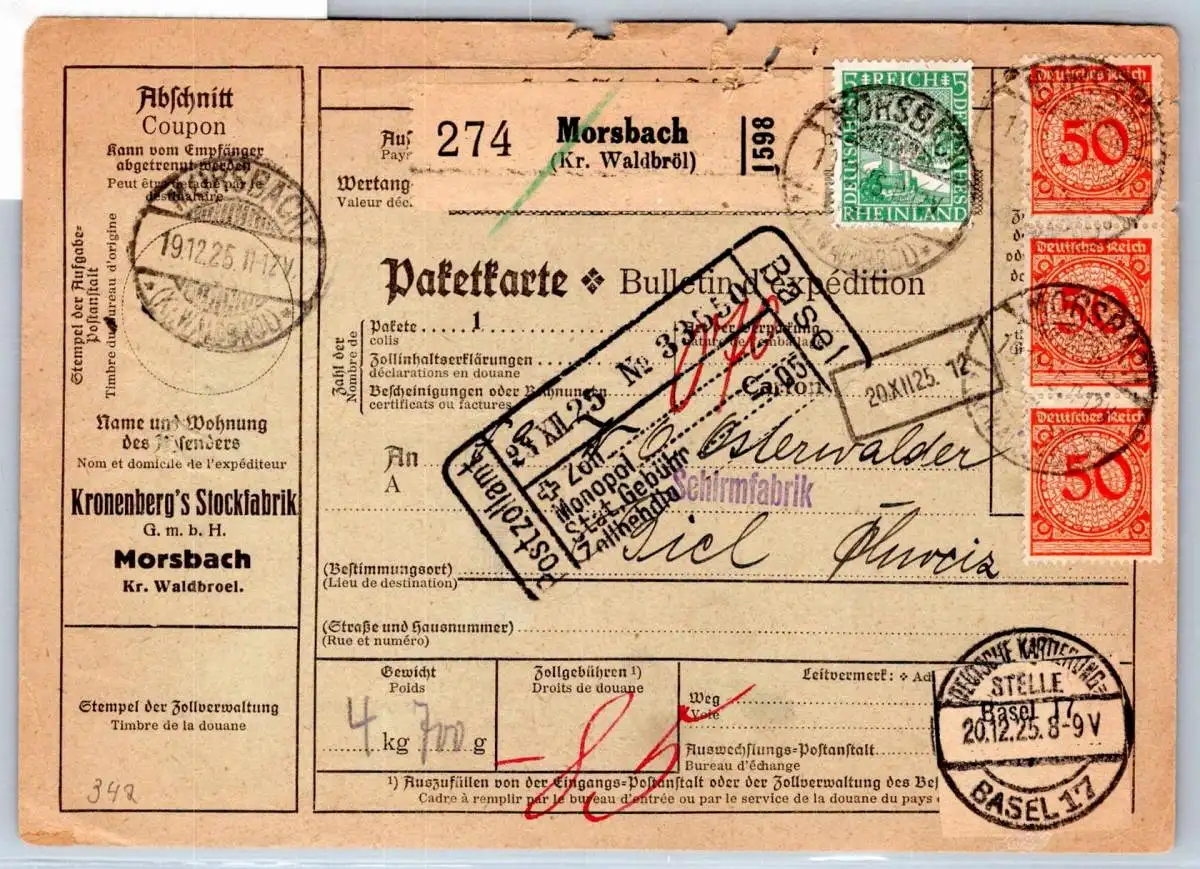 Abschnitt
Coupon
Kann vom Empfänger
abgetrennt werden
Peut être détaché par le
destinataire
Stempel der Aufgabe-
Postanstalt
Timbre du bureau d'origine
MORSBACH
19.12.25. 11-12V.
* (Kr. WALDBRÖL) *
Name und Wohnung
des Absenders
Nom et domicile de l'expéditeur
Kronenberg's Stockfabrik
G. m. b. H.
Morsbach
Kr. Waldbroel.
Stempel der Zollverwaltung
Timbre de la douane
342
274
Morsbach
(Kr. Waldbröl)
1598
Wertang
Valeur déc
Paketkarte ❖ Bulletin d'expédition
Zahl der
Nombre de
Pakete 1
colis
Zollinhaltserklärungen
déclarations en douane
Bescheinigungen oder Rechnungen
certificats ou factures
Art der Verpackung
nature de l'emballage
Carton
An
A
Osterwalder
Schirmfabrik
Biel Schweiz
(Bestimmungsort)
(Lieu de destination)
(Straße und Hausnummer)
(Rue et numéro)
Postzollamt Basel
XII 25 № 33550
Zoll
Monopol
Stat. Gebühr 05
Zollbehdlg
070
20.XII 25. 12
5 REICH 5
DEUTSCHES
RHEINLAND
MORSBACH
Deutsches Reich
50
Deutsches Reich
50
MORSBACH
Deutsches Reich
50
Gewicht
Poids
4 kg 700 g
Zollgebühren ¹)
Droits de douane
-85
Leitvermerk: ❖ Ad
Weg
Voie
Auswechslungs-Postanstalt
Bureau d'échange
¹) Auszufüllen von der Eingangs-Postanstalt oder der Zollverwaltung des Bes
Cadre à remplir par le bureau d'entrée ou par le service de la douane du pays
DEUTSCHE KARTIERUNG=
STELLE
Basel 17
20.12.25. 8-9 V
BASEL 17